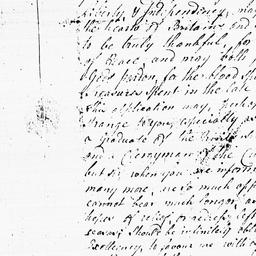 liberty, & Independency, may
the hearts of Britains and
to be truly thankful, for
of Peace, and may both
God's pardon, for the blood
treasures spent in the late
this application may, perhaps
strange to you, especially as
a Graduate of the
and a Clergyman of the
but Sir, when you are inform
many more, are so much
cannot bear much longer,
hopes of relief or redress
should be infinitely
Excellency, to favour me with